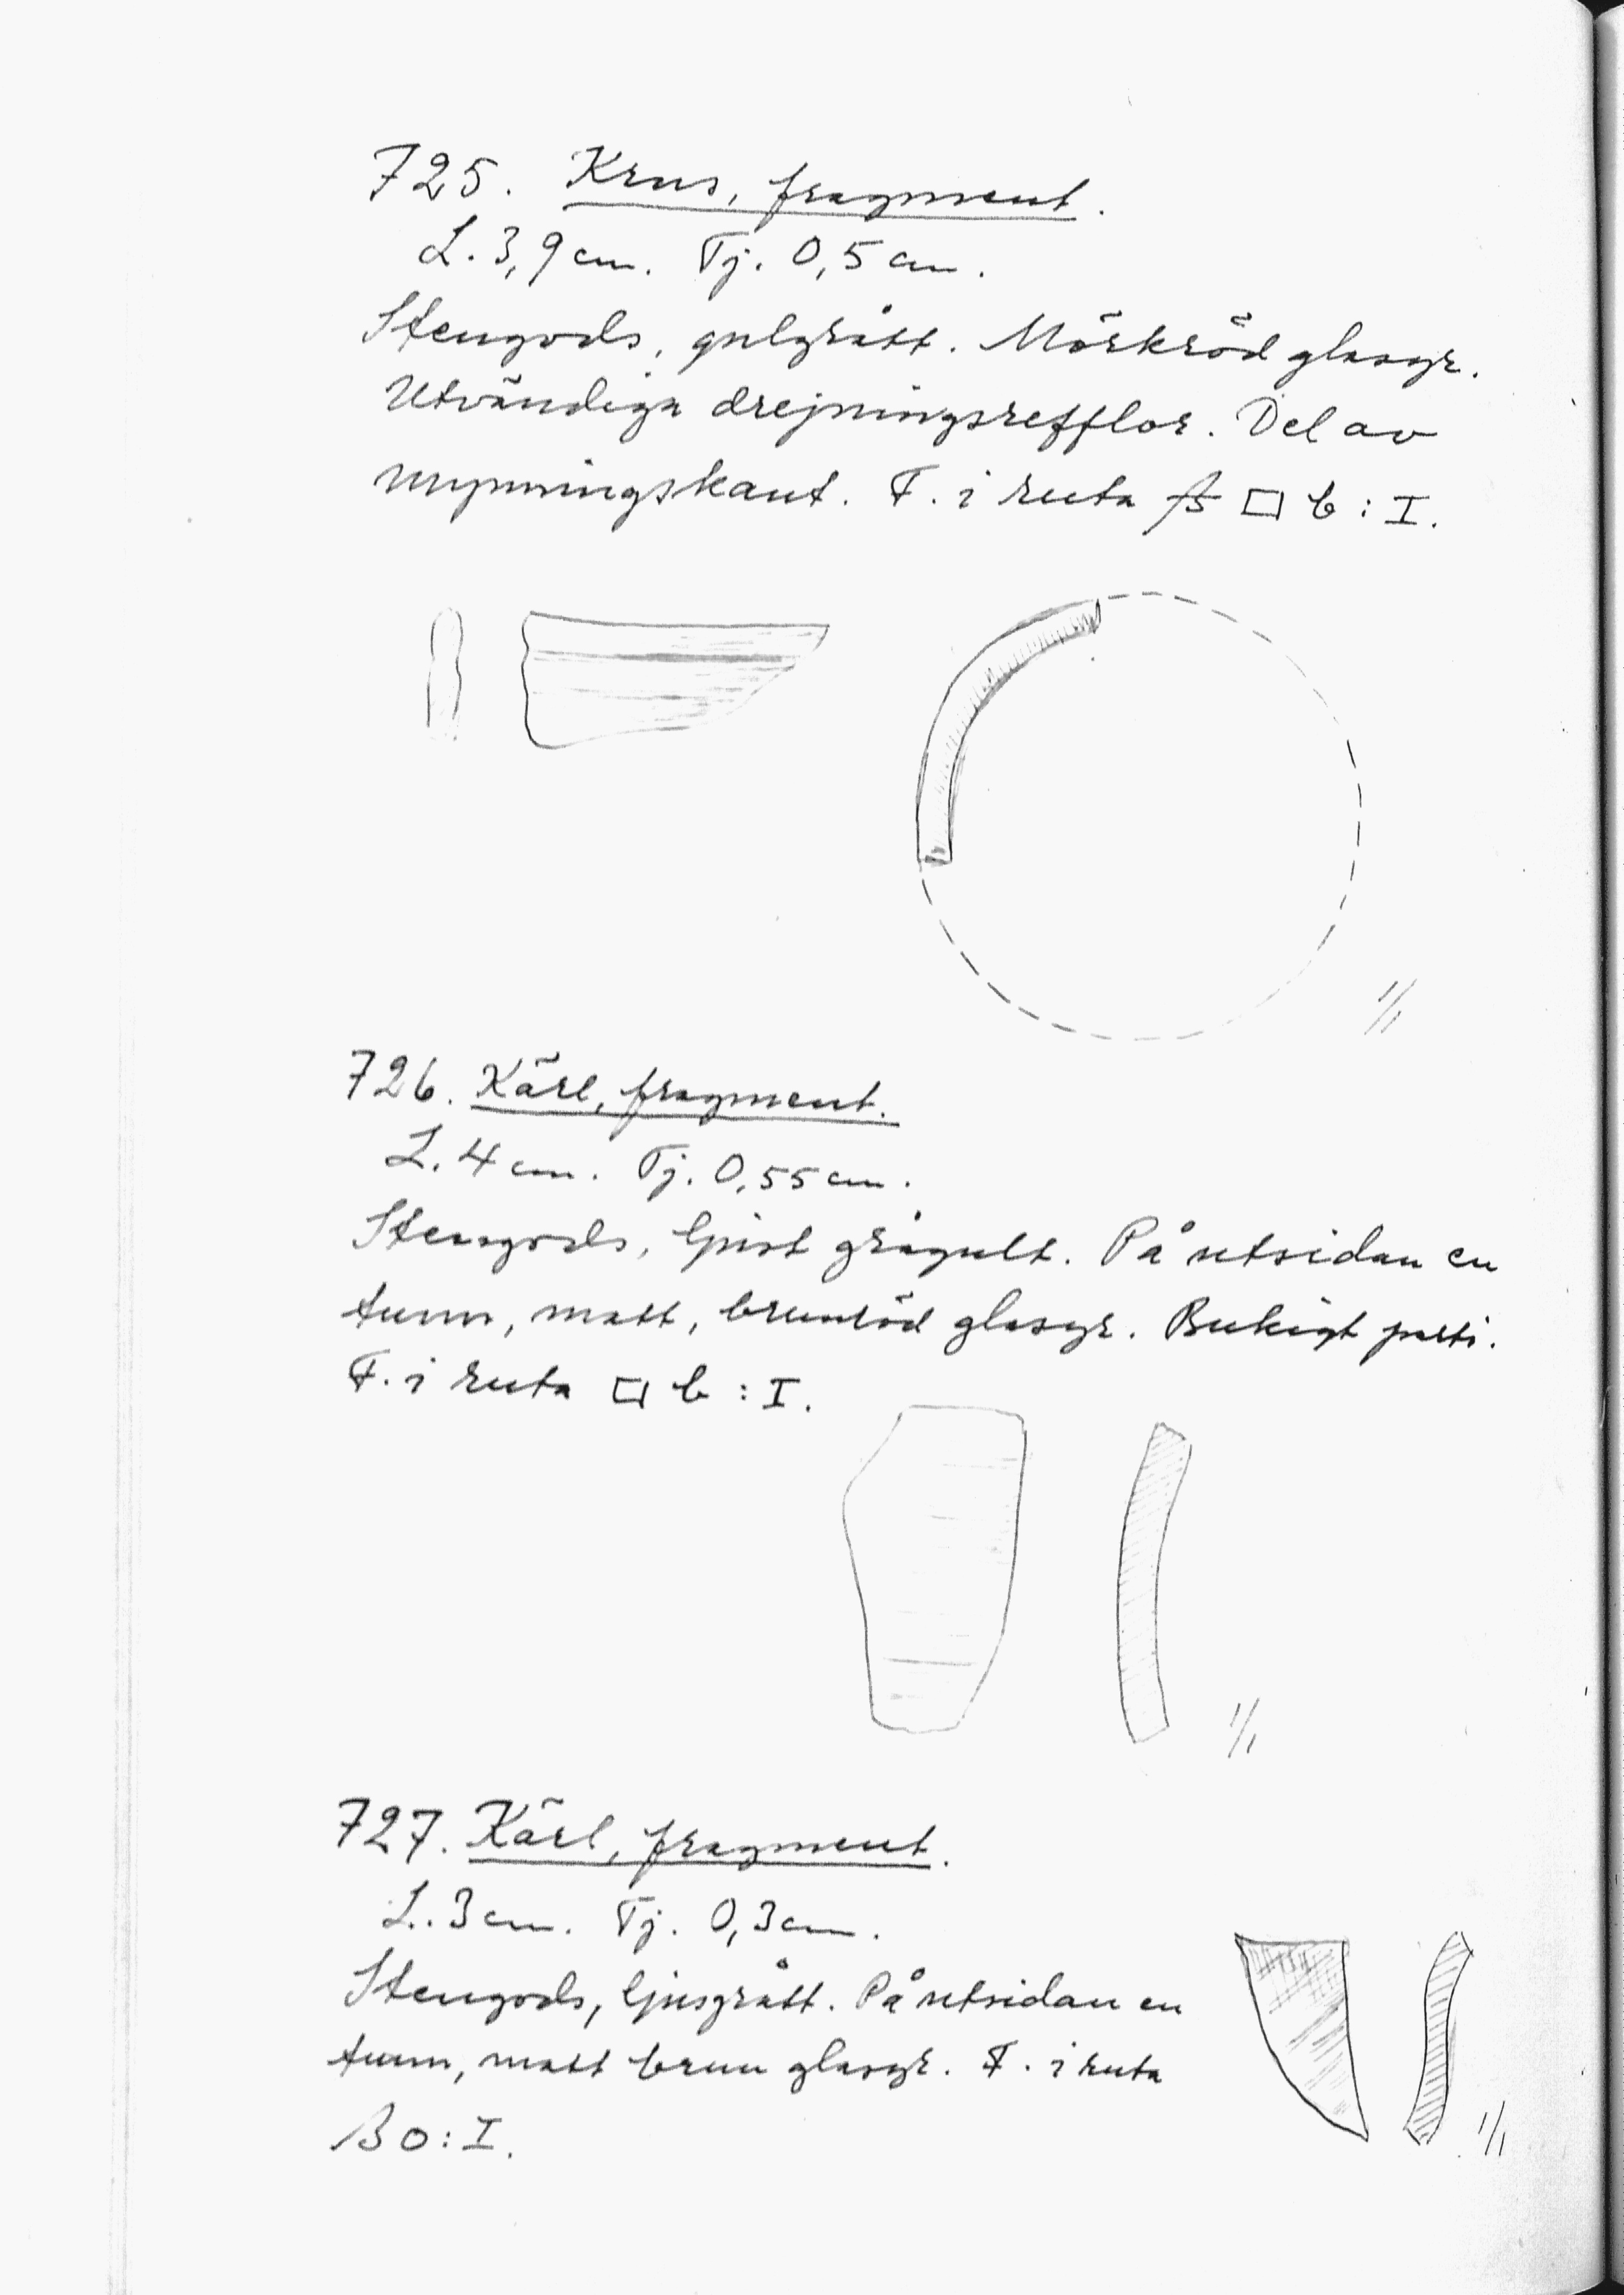 725. Krus, fragment.
L. 3,9 cm. Tj. 0,5 cm.
Stengods, gulgrått. Mörkröd glasyr.
Utvändiga drejningsrefflor. Del av
mynningskant. F. i ruta □ b : I.
1/1
726. Kärl, fragment.
L. 4 cm. Tj. 0,55 cm.
Stengods, ljust grågult. På utsidan en
tunn, matt, brunröd glasyr. Bukigt parti.
F. i ruta □ b : I.
1/1
727. Kärl, fragment.
L. 3 cm. Tj. 0,3 cm.
Stengods, ljusgrått. På utsidan en
tunn, matt brun glasyr. F. i ruta
B o : I.
1/1